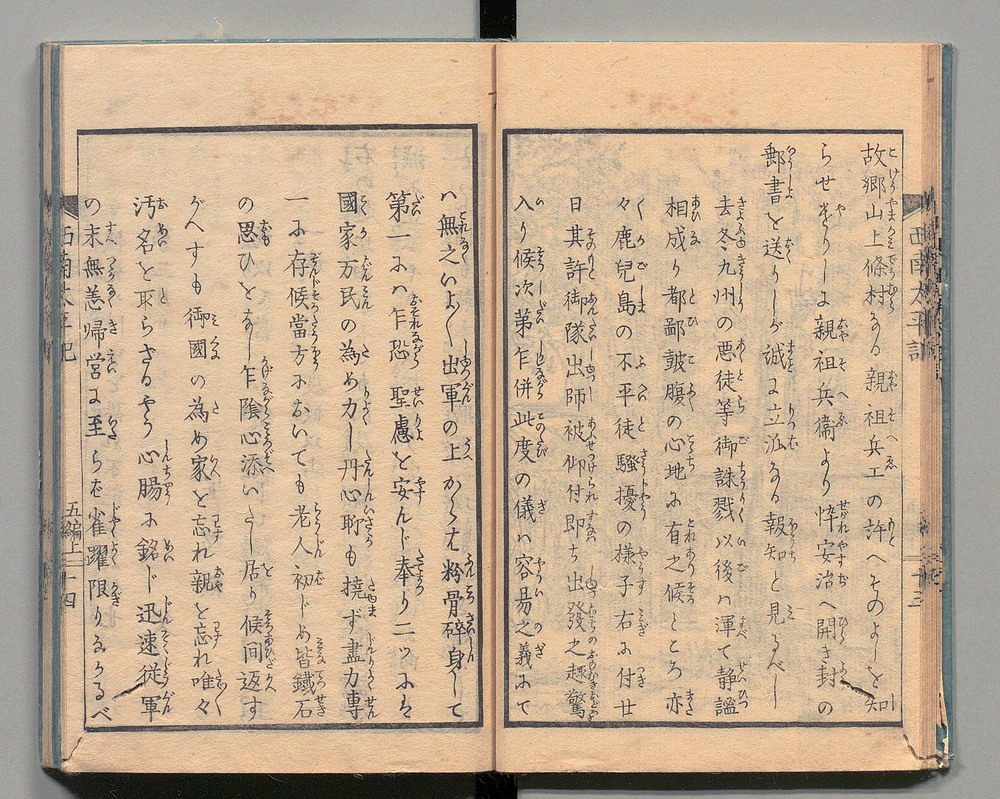 故郷山上條村なる親祖兵エの許へそのよしを知
らせやりしに親祖兵衞より悴安治へ開き封の
郵書を送りしが誠に立派なる報知と見るべし
去冬九州の悪徒等御誅戮以後ハ渾て静謐
相成り都鄙皷腹の心地に有之候ところ亦
々鹿児島の不平徒騒擾の様子右に付廿
日其許御隊出師被仰付即ち出發之趣驚
入り候次第乍併此度の儀ハ容易之義にて
ハ無之いよ〱出軍の上からは粉骨碎身して
第一にハ乍恐聖慮を安んじ奉り二ツには
國家万民の為め力し丹心聊も撓ず盡力専
一に存候當方においても老人初じめ皆鐵石
の思ひをなし乍陰心添いたし居り候間返す
がへすも御國の為め家を忘れ親を忘れ唯々
汚名を取らざるやう心腸に銘じ迅速従軍
の末無恙帰営に至らば雀躍限りなかるべ
西南太平記
五編上
十四
西南太平記
十三